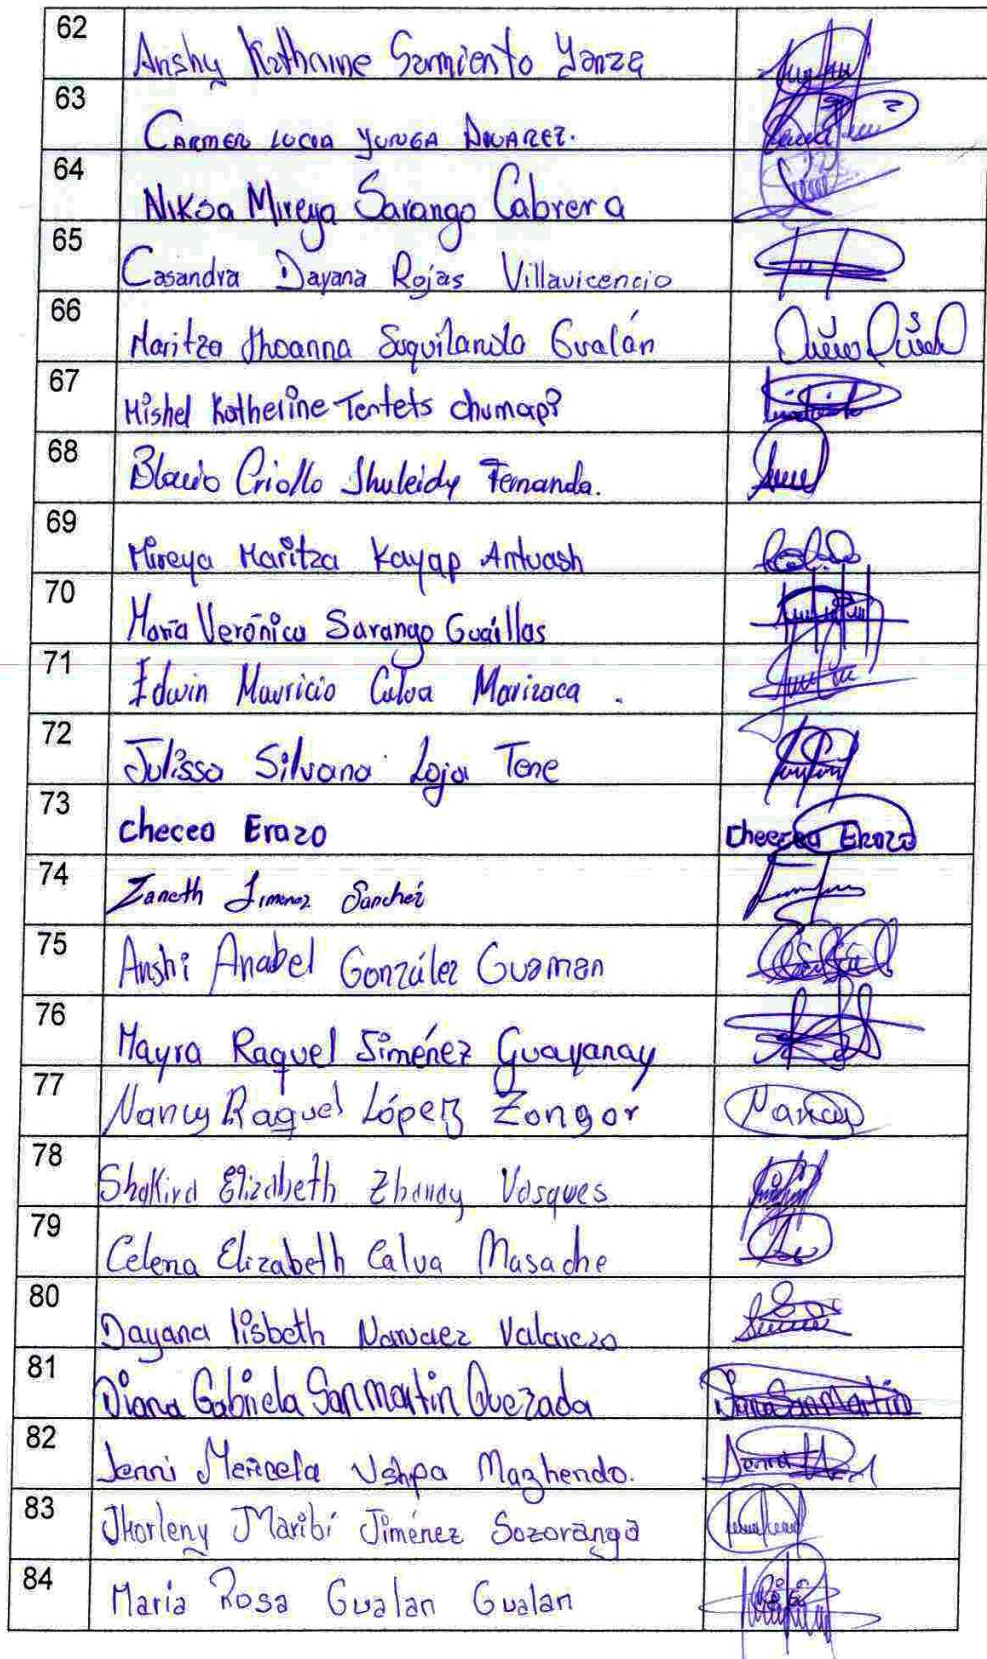 62 Anshy Katherine Sarmiento Yanza
63 CARMEN LUCIA YUNGA
64 Niksa Mireya Sarango Cabrera
65 Casandra Dayana Rojas Villavicencio
66 Maritza Jhoanna Suquilanda Gualán
67 Mishel Katherine Tentets chumapi
68 Criollo Jhuleidy Fernanda.
69 Mireya Maritza Kayap Antuash
70 María Verónica Sarango Guaillas
71 Edwin Mauricio Calva Marizaca .
72 Julissa Silvana Loja Tene
73 checeo Erazo Erazo
74 Zaneth Jimenez Sanchez
75 Anshi Anabel González Guaman
76 Mayra Raquel Jiménez Guayanay
77 Nancy Raquel López Zongor Nancy
78 Shakira Elizabeth Zhanay Vasques
79 Celena Elizabeth Calva Masache
80 Dayana lisbeth Narvaez Valarezo
81 Diana Gabriela Sanmartin Quezada Diana Sanmartin
82 Jenni Maricela Ushpa Mazhendo.
83 Jhorleny Maribí Jiménez Sozoranga
84 Maria Rosa Gualan Gualan